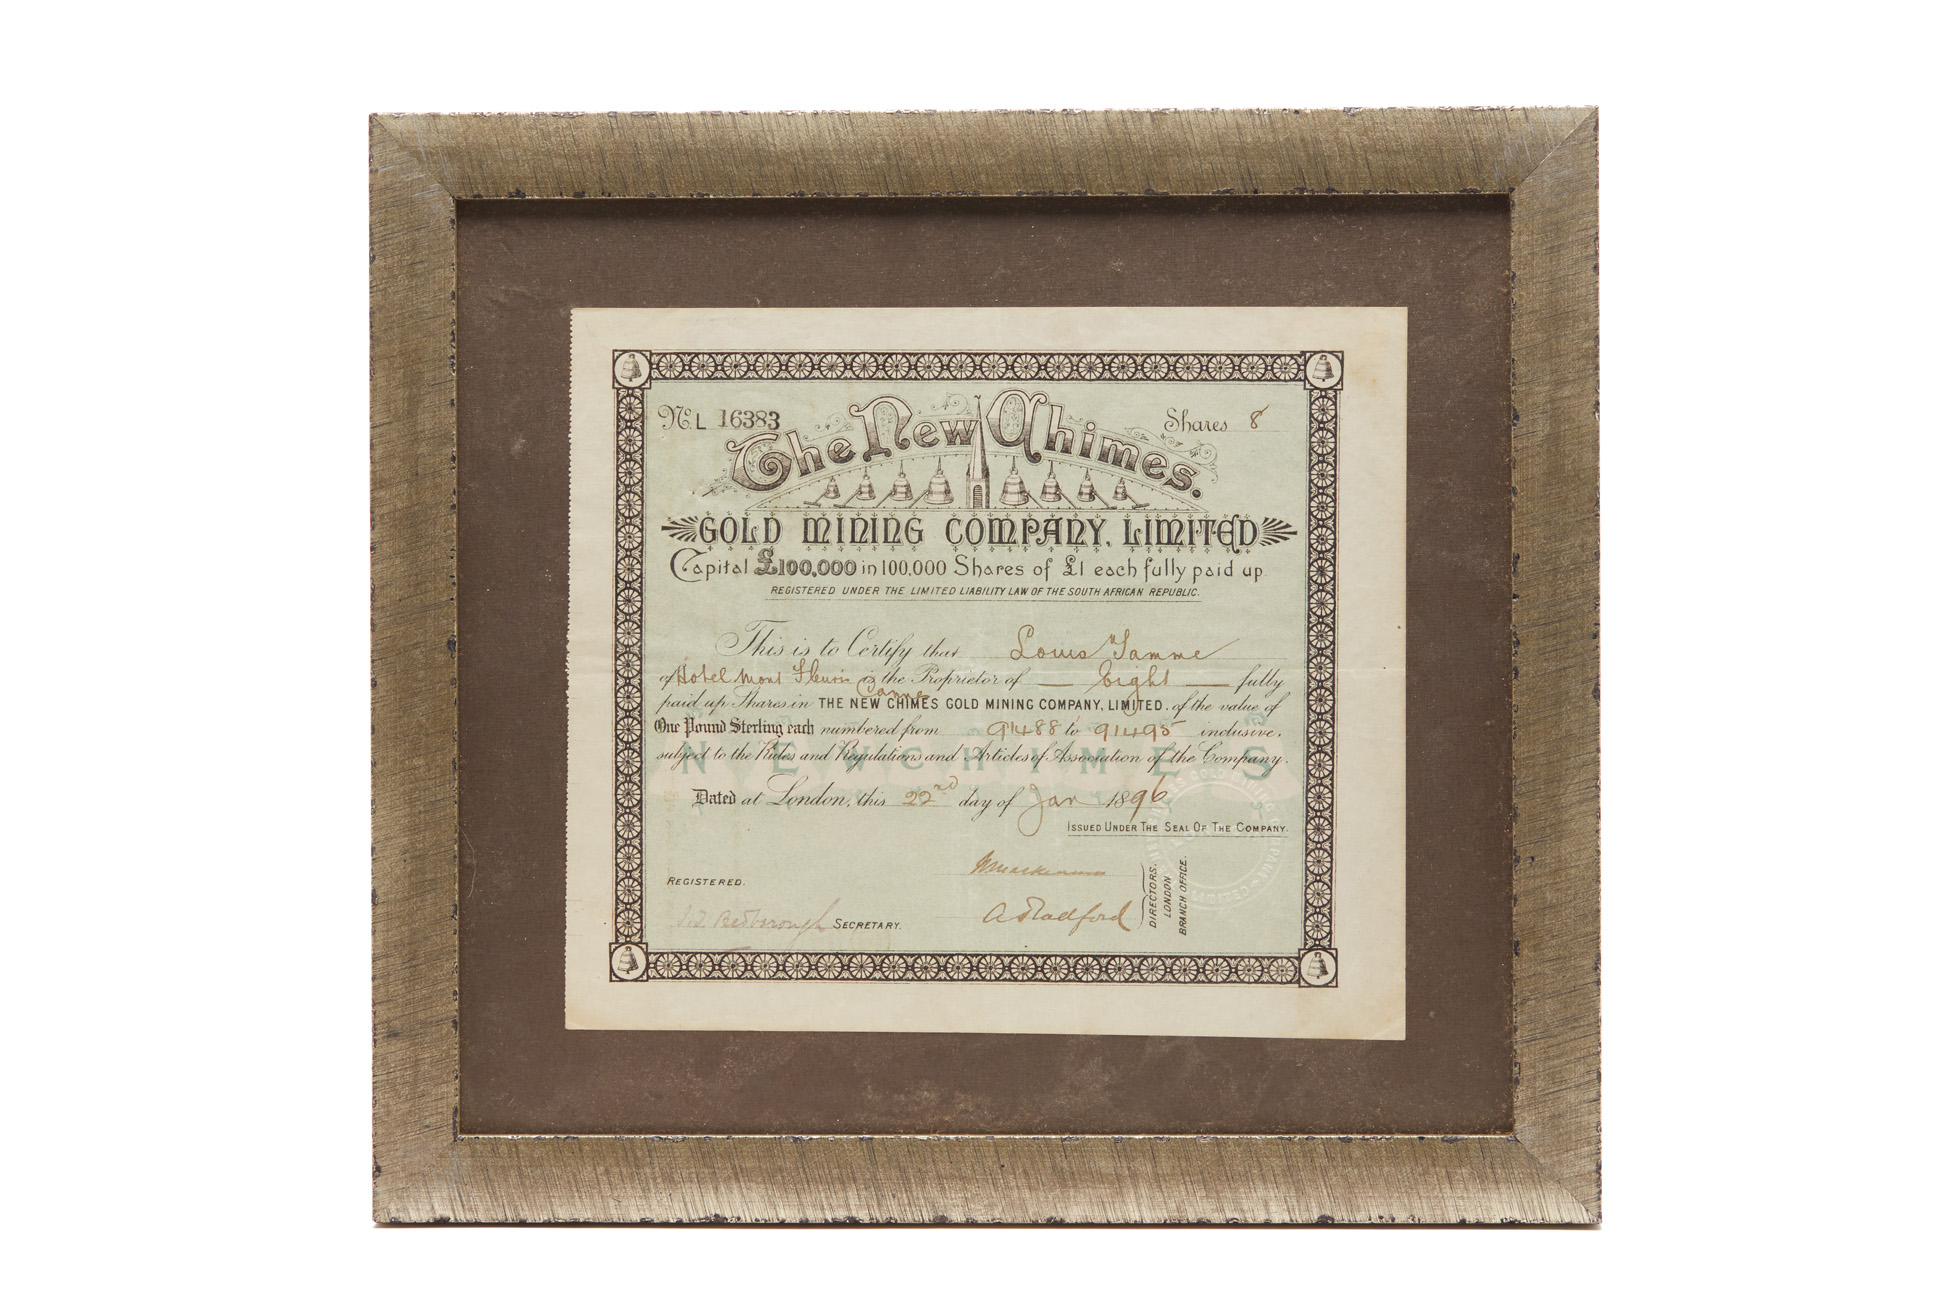 No. L 16383
Shares 8
The New Chimes.
GOLD MINING COMPANY, LIMITED
Capital £100,000 in 100,000 Shares of £1 each fully paid up
REGISTERED UNDER THE LIMITED LIABILITY LAW OF THE SOUTH AFRICAN REPUBLIC.
This is to Certify that Louis Tamme
of Hotel Mont Fleuri is the Proprietor of — Eight — fully
Canne
paid up Shares in THE NEW CHIMES GOLD MINING COMPANY, LIMITED. of the value of
One Pound Sterling each numbered from 91488 to 91495 inclusive,
subject to the Rules and Regulations and Articles of Association of the Company.
NEW CHIMES
Dated at London, this 22nd day of Jan 1896
ISSUED UNDER THE SEAL OF THE COMPANY.
REGISTERED.
SECRETARY.
A. Stadford
DIRECTORS.
LONDON
BRANCH OFFICE.